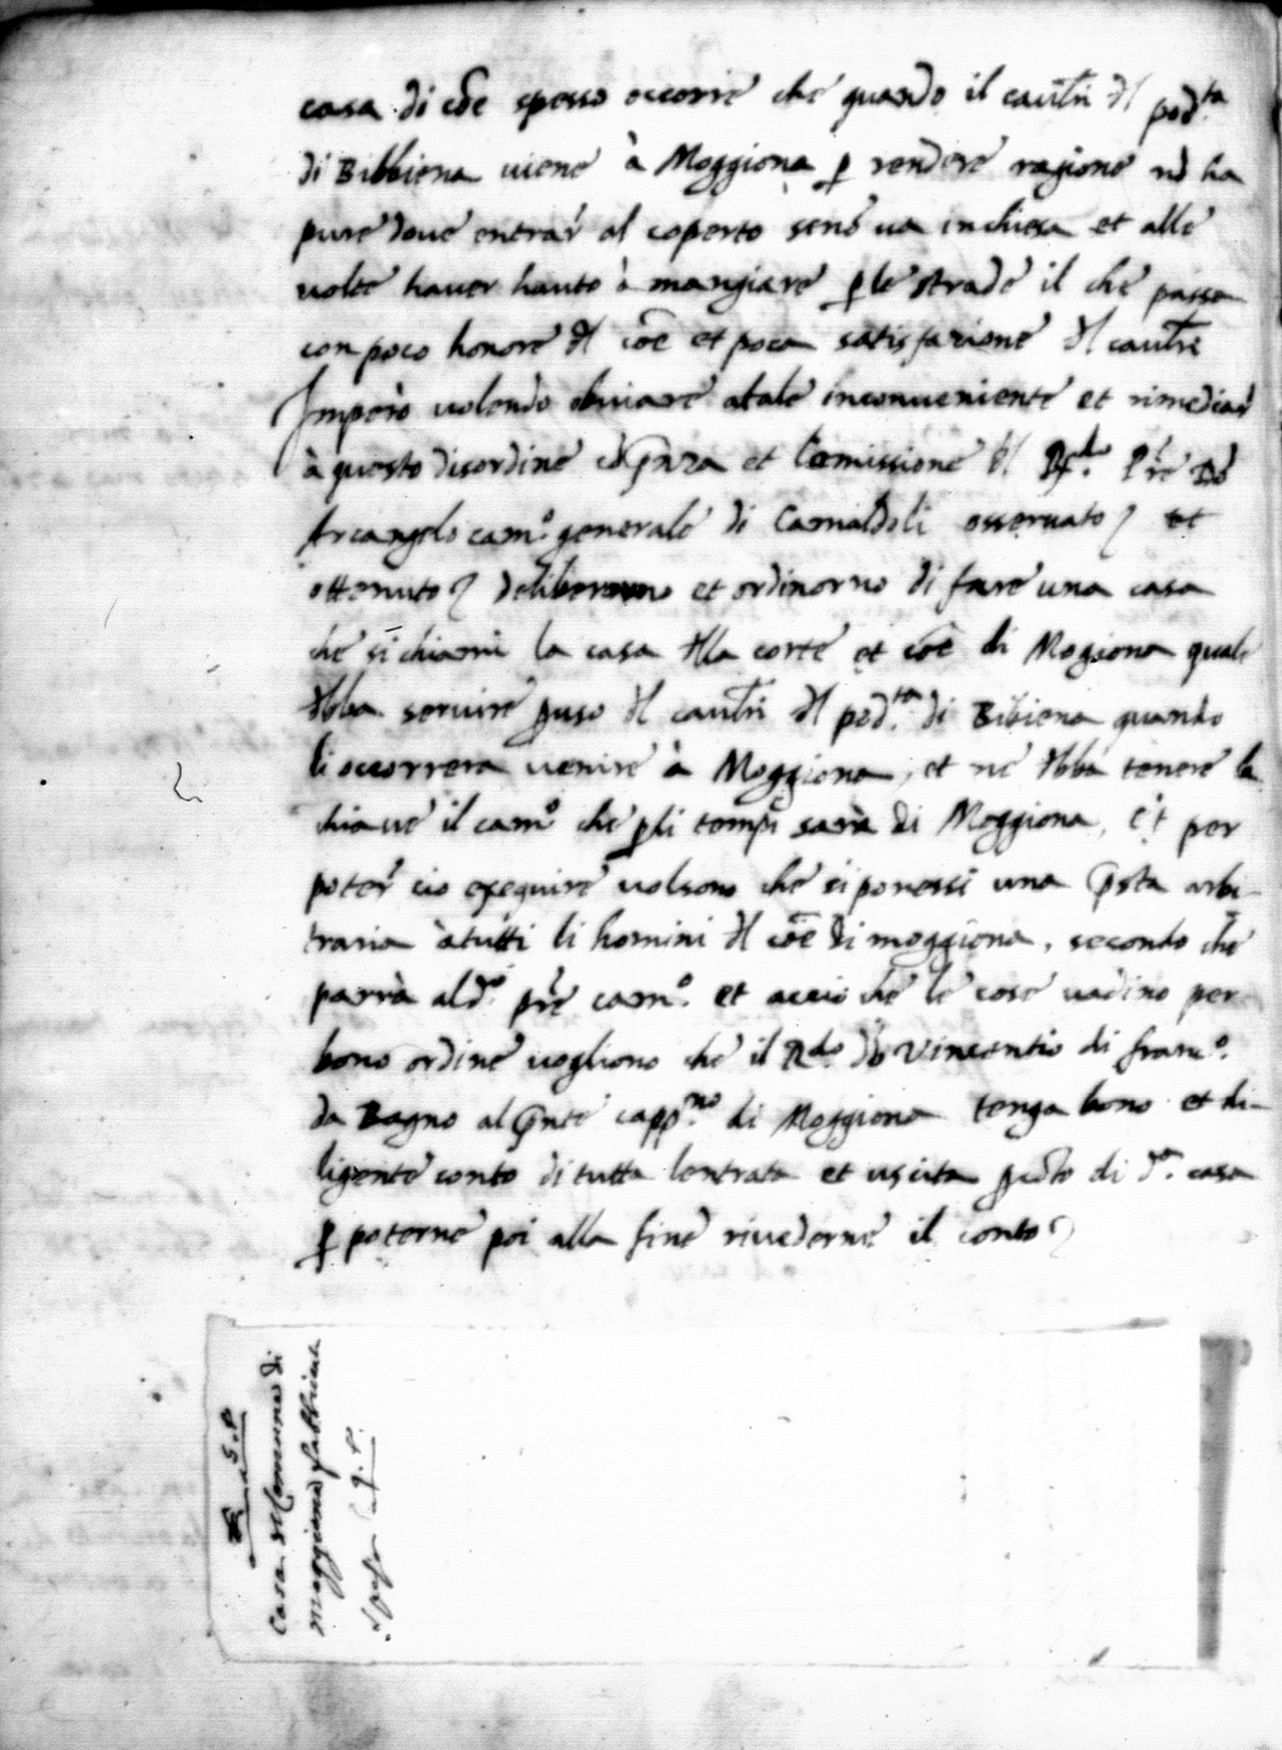 casa di cõe spesso occorre che quando il caultri dl pod.ta
di Bibbiena viene à Moggiona p rendere ragione nõ ha
pure dove entrar al coperto senõ va in chiesa et alle
volte haver hauto à mangiare p le strade il che passa
con poco honore dl cõe et poca satisfazione dl caultre
Imperò volendo obviare a tale inconveniente et rimediar
à questo disordine et comissione dl R.do Prē Dõ
Arcangelo cam.o generale di Camaldoli osservato et
ottenuto deliberorno et ordinorno di fare una casa
che si chiami la casa dlla corte et cõe di Mogiona quale
dbba servire p uso dl caultri dl pod.ta di Bibiena quando
li occorrera venire à Moggiona, et ne dbba tenere la
chiave il cam.o che p li tempi sarà di Moggiona, et per
poter cio exequire volsono che si ponessi una psta arbi-
traria à tutti li homini dl cõe di moggiona, secondo che
parrà al d.o prē cam.o et acciò che le cose vadino per
bono ordine vogliono che il R.do dõ Vincentio di franc.o
da Bagno al pnte capp.no di Moggiona tenga bono et di-
ligente conto di tutta lentrata et uscita p cõto di d.a casa
p poterne poi alla fine rivederne il conto
Casa del Comune di
Moggiona fabbricata